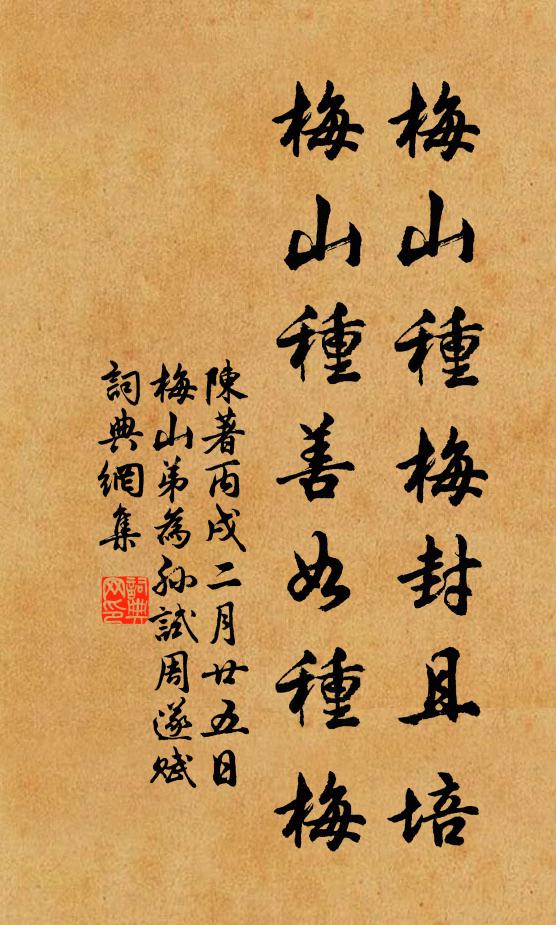 梅山種梅封且培
梅山種善如種梅
陳著丙戌二月廿五日
梅山弟為孫試周遂賦
詞典網集
詞典網印